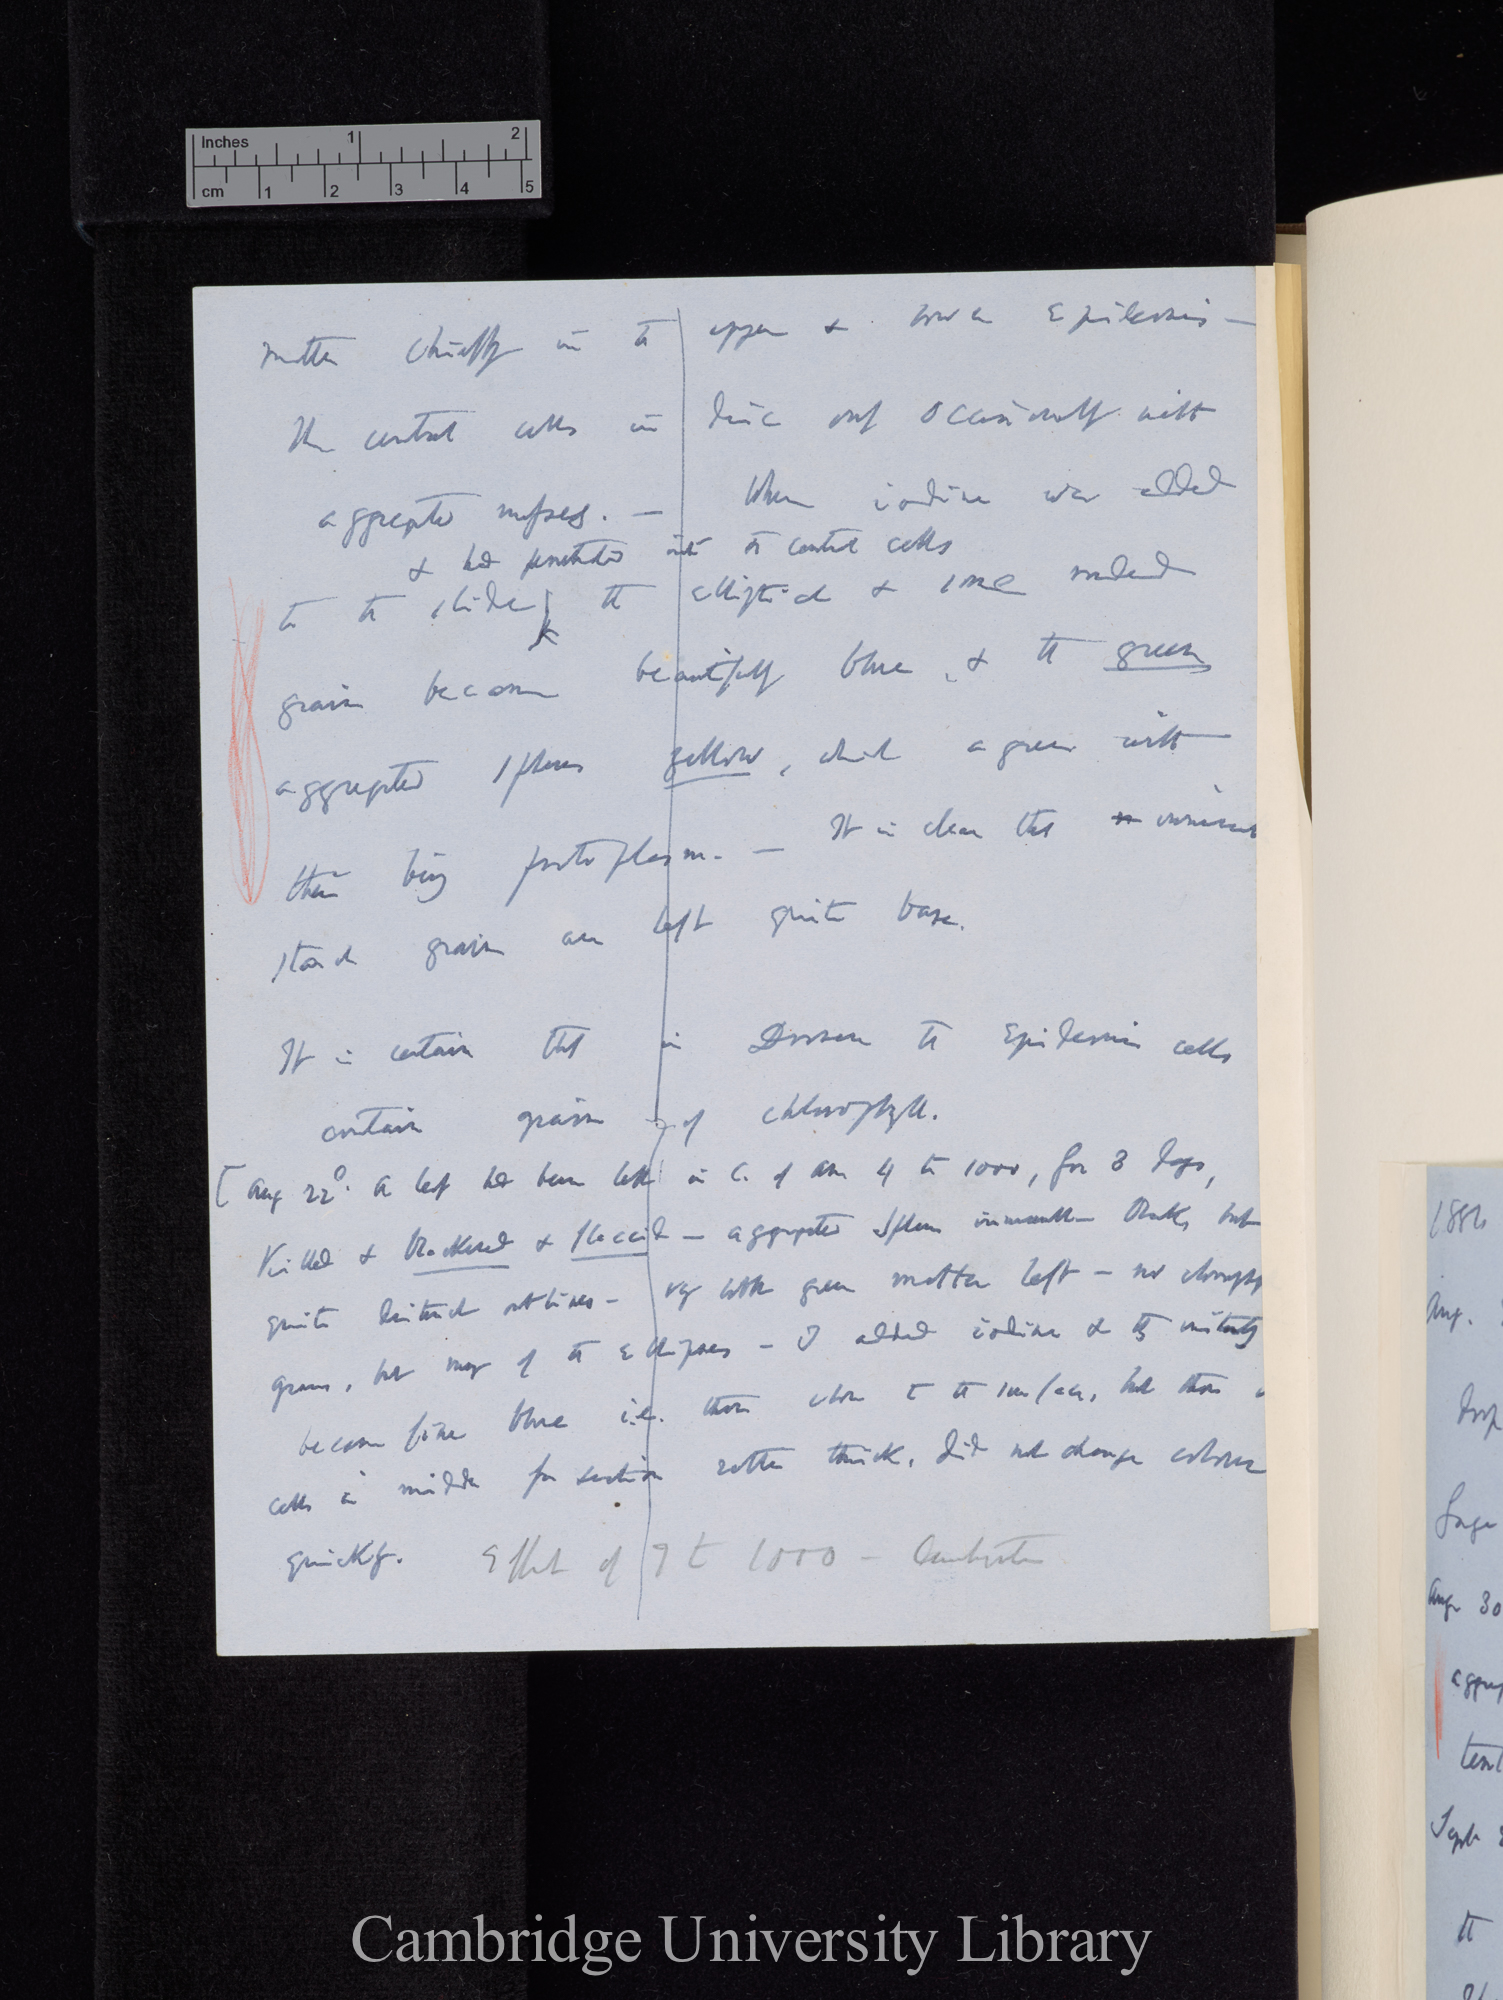 Inches 1 2
cm 1 2 3 4 5
matter chiefly in the upper & lower Epidermis —
The central cells in disc only occasionally with
aggregated masses. — When iodine was added
& had penetrated into the central cells
to the slide, the elliptical & some rounded
grains became beautifully blue, & the green
aggregated spheres yellow, which agrees with
their being protoplasm. — It is clear that
starch grains are left quite bare.
It is certain that in Drosera the Epidermis cells
contain grains of chlorophyll.
[Aug 22º. A leaf had been left in C. of Am 4 to 1000, for 3 days,
Killed & blackened & flaccid — aggregated spheres dark, but
quite distinct outlines — very little green matter left — no
grains, but many of the Ellipses — I added iodine & they instantly
became fine blue i.e. those close to the surface, but those
cells in middle for section rather thick, did not change colour
quickly. Effect of 7 to 1000 —
1881
Aug.
Aug 30
Sept
Cambridge University Library